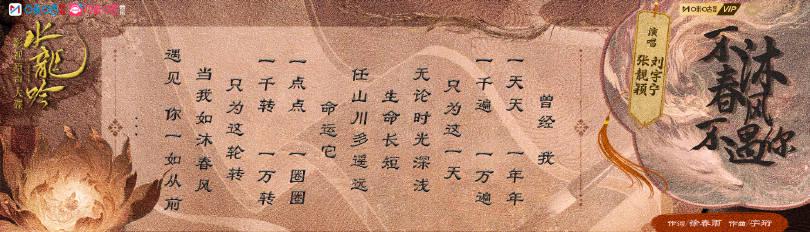 咪咕 VIP
不沐
春风
不遇你
演唱
刘宇宁
张靓颖
作词/徐春雨 作曲/宇珩
曾经 我
一天天 一年年
一千遍 一万遍
只为这一天
无论时光深浅
生命长短
任山川多遥远
命运它
一点点 一圈圈
一千转 一万转
只为这轮转
当我如沐春风
遇见 你一如从前
...
水龍吟
影视原声大碟